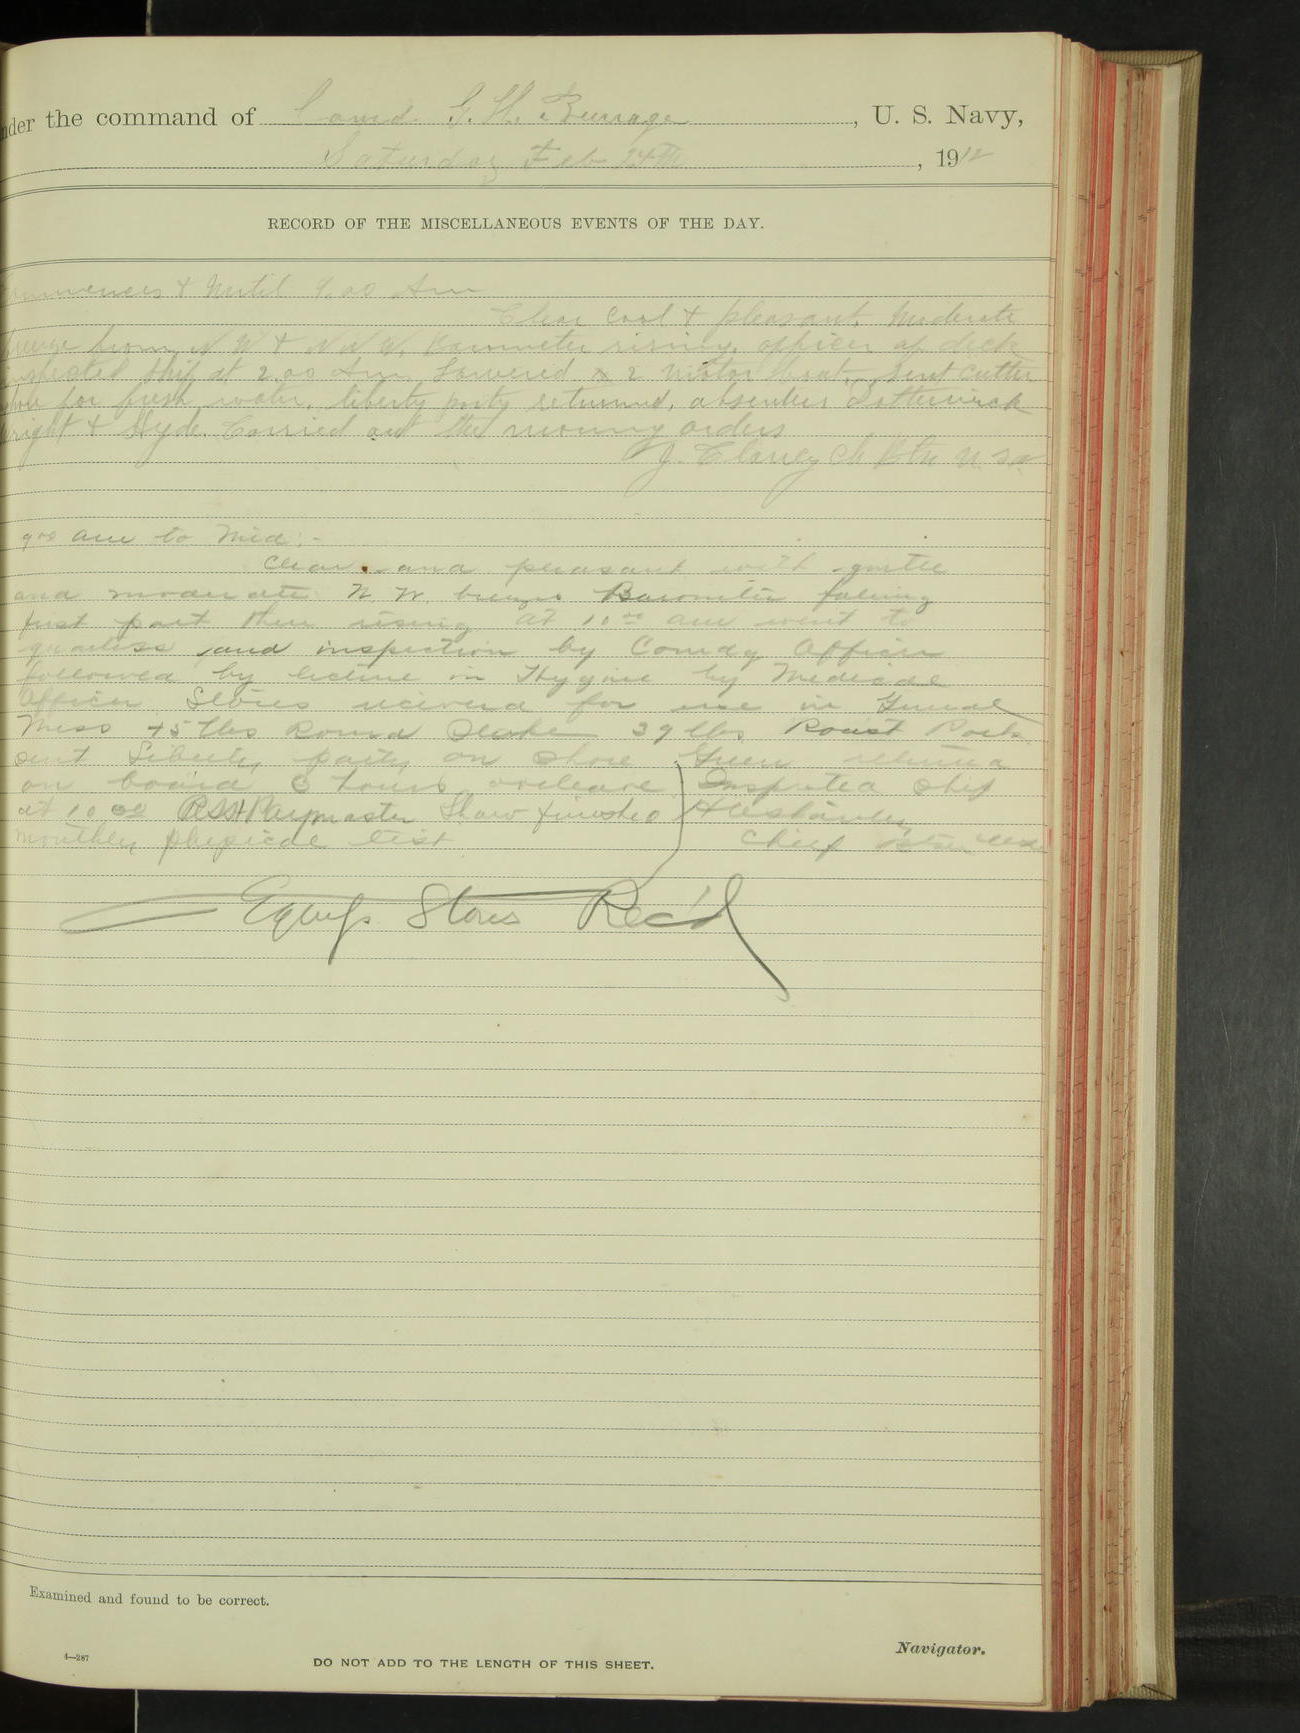 nder the command of Comd. G. H. Burrage, U. S. Navy,
Saturday Feb 24th, 1912
RECORD OF THE MISCELLANEOUS EVENTS OF THE DAY.
ommences & Until 9.00 Am
Clear cool & pleasant. Moderate
from N W & N N W. Barometer rising. officer of deck
inspected ship at 2.00 Am. Lowered 2 Motor boat. Sent cutter
for fresh water. liberty party returned, absentees
right & Hyde. Carried out the morning orders
J. Clancy Ch Btn U.S.N.
9 00 am to Mid:-
Clear and pleasant with gentle
and moderate N. W. breeze Barometer falling
first part then rising at 10 00 am went to
quarters and inspection by Comdg Officer
followed by lecture on Hygine by Medical
Officer Stores received for use in General
Mess 45 lbs Round Steake 39 lbs Roast Pork
sent liberty party on shore Green returned
on board hours overleave Inspected ship
at 10 Paymaster Shaw finished
monthly physicle test
Chief Btn
Equip Stores Rec'd
Examined and found to be correct.
Navigator.
4—287
DO NOT ADD TO THE LENGTH OF THIS SHEET.